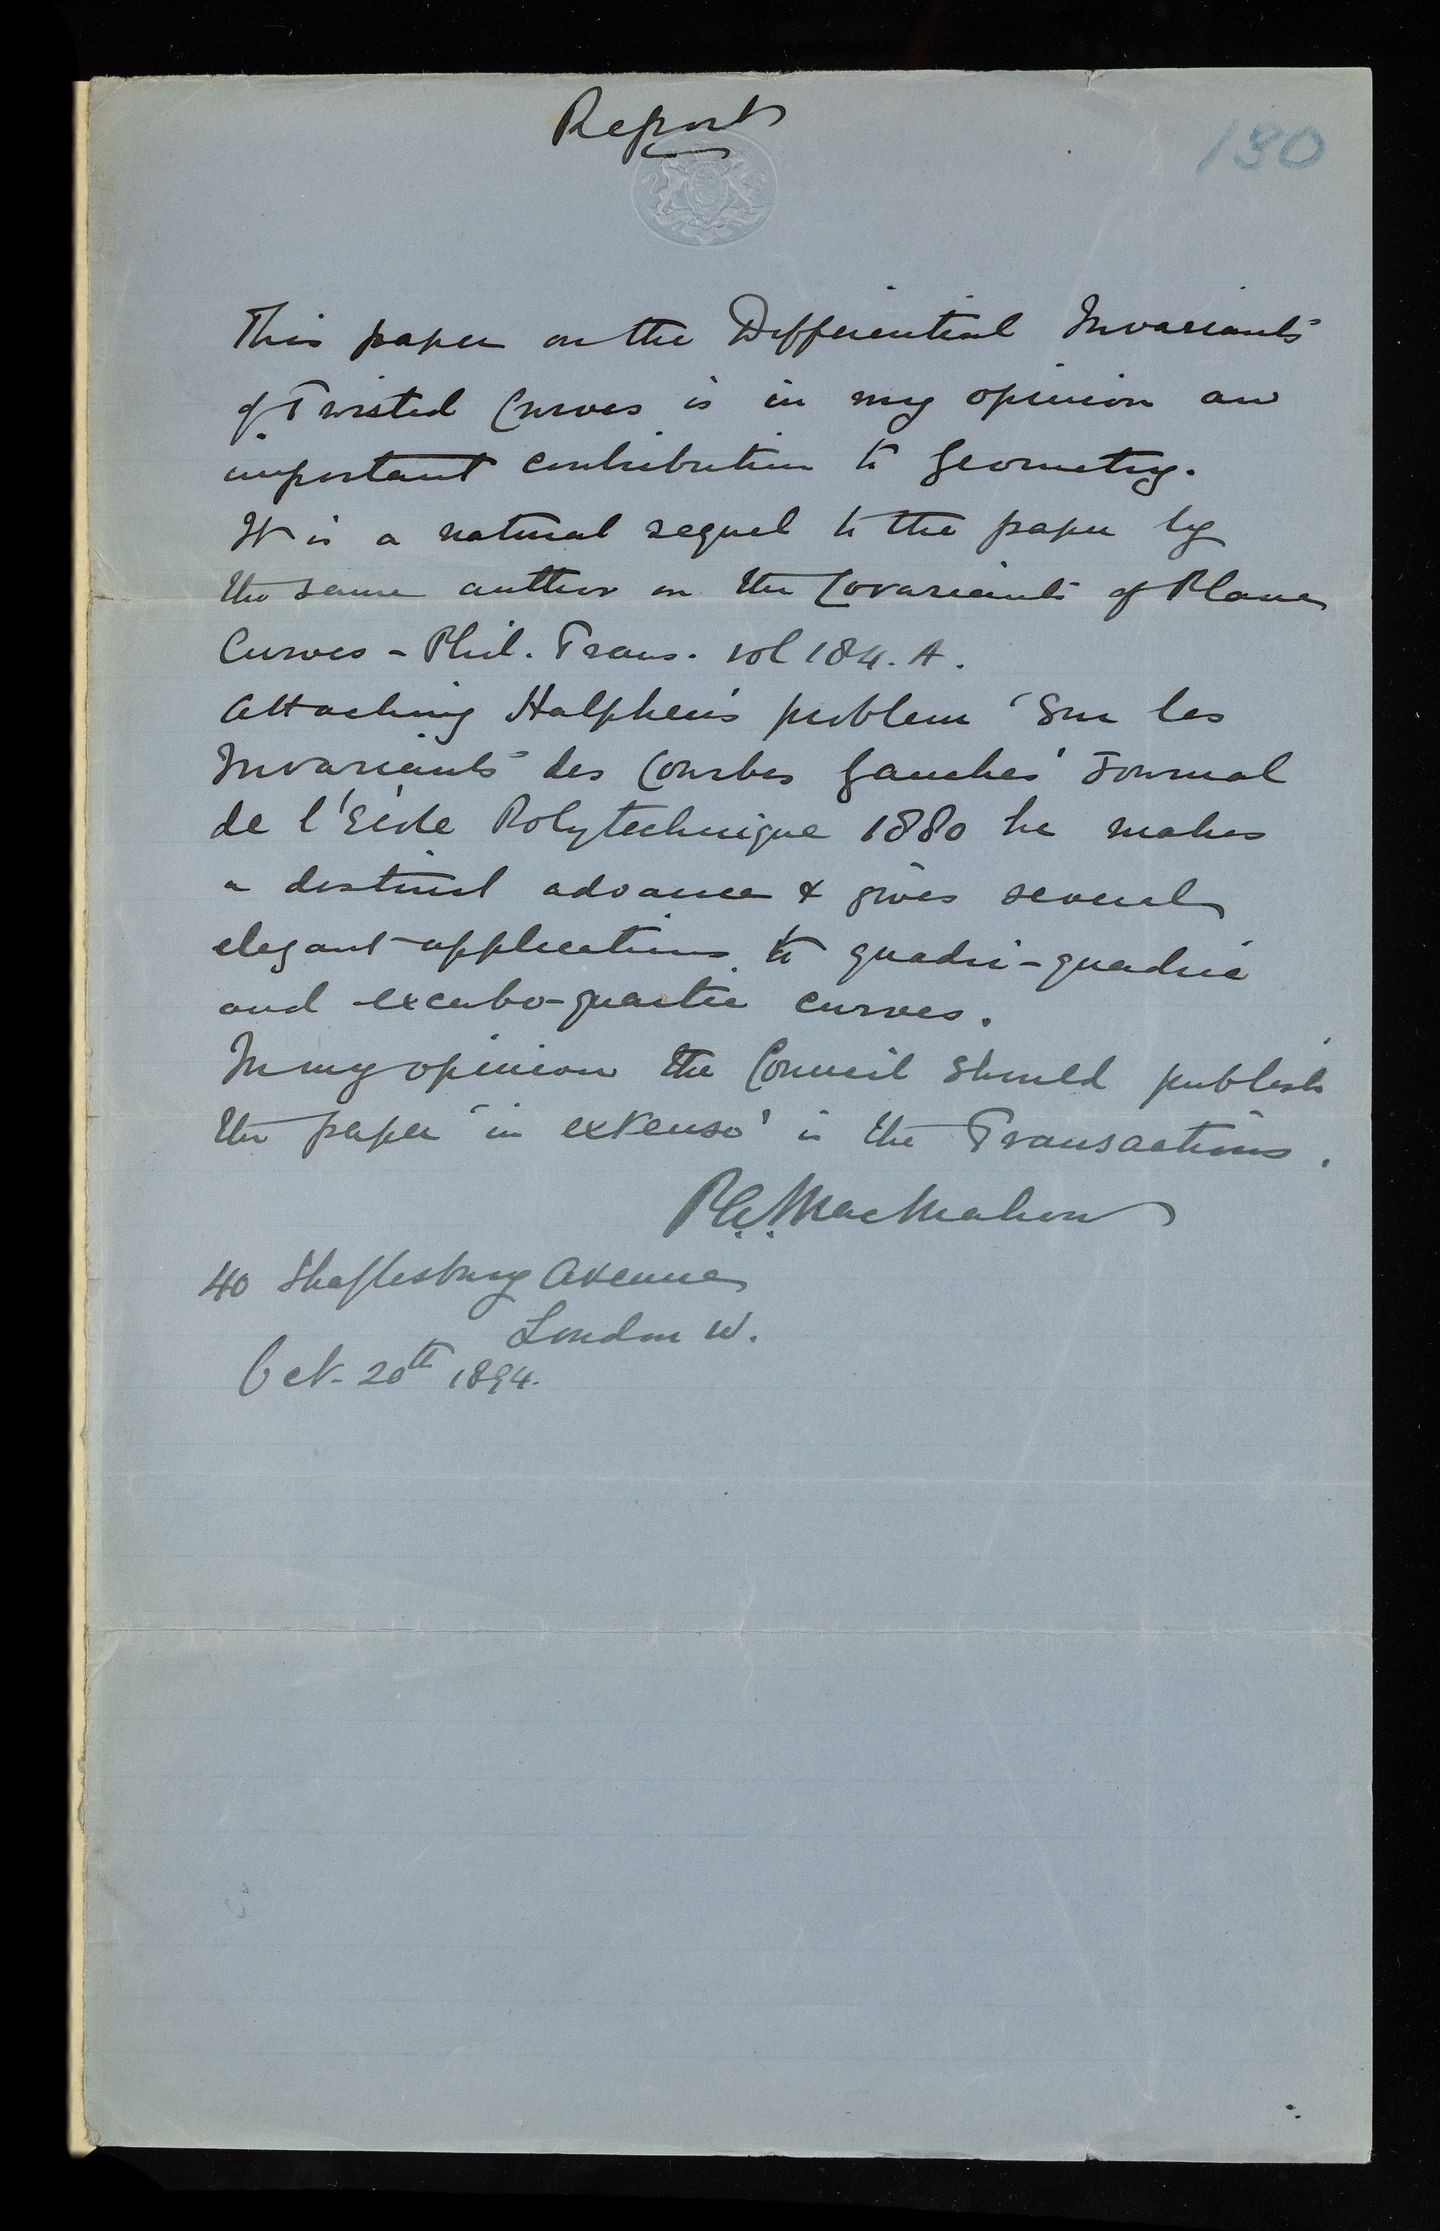 Report
130
This paper on the Differential Invariants
of Twisted Curves is in my opinion an
important contribution to Geometry.
It is a natural sequel to the paper by
the same author on the Covariants of Plane
Curves - Phil. Trans. vol 184. A.
Attacking Halphen's problem 'Sur les
Invariants des Courbes Gauches' Journal
de l'École Polytechnique 1880 he makes
a distinct advance & gives several
elegant applications to quadri-quadric
and excubo-quartic curves.
In my opinion the Council should publish
the paper 'in extenso' in the Transactions.
P.A. MacMahon
40 Shaftesbury Avenue
London W.
Oct. 20th 1894.